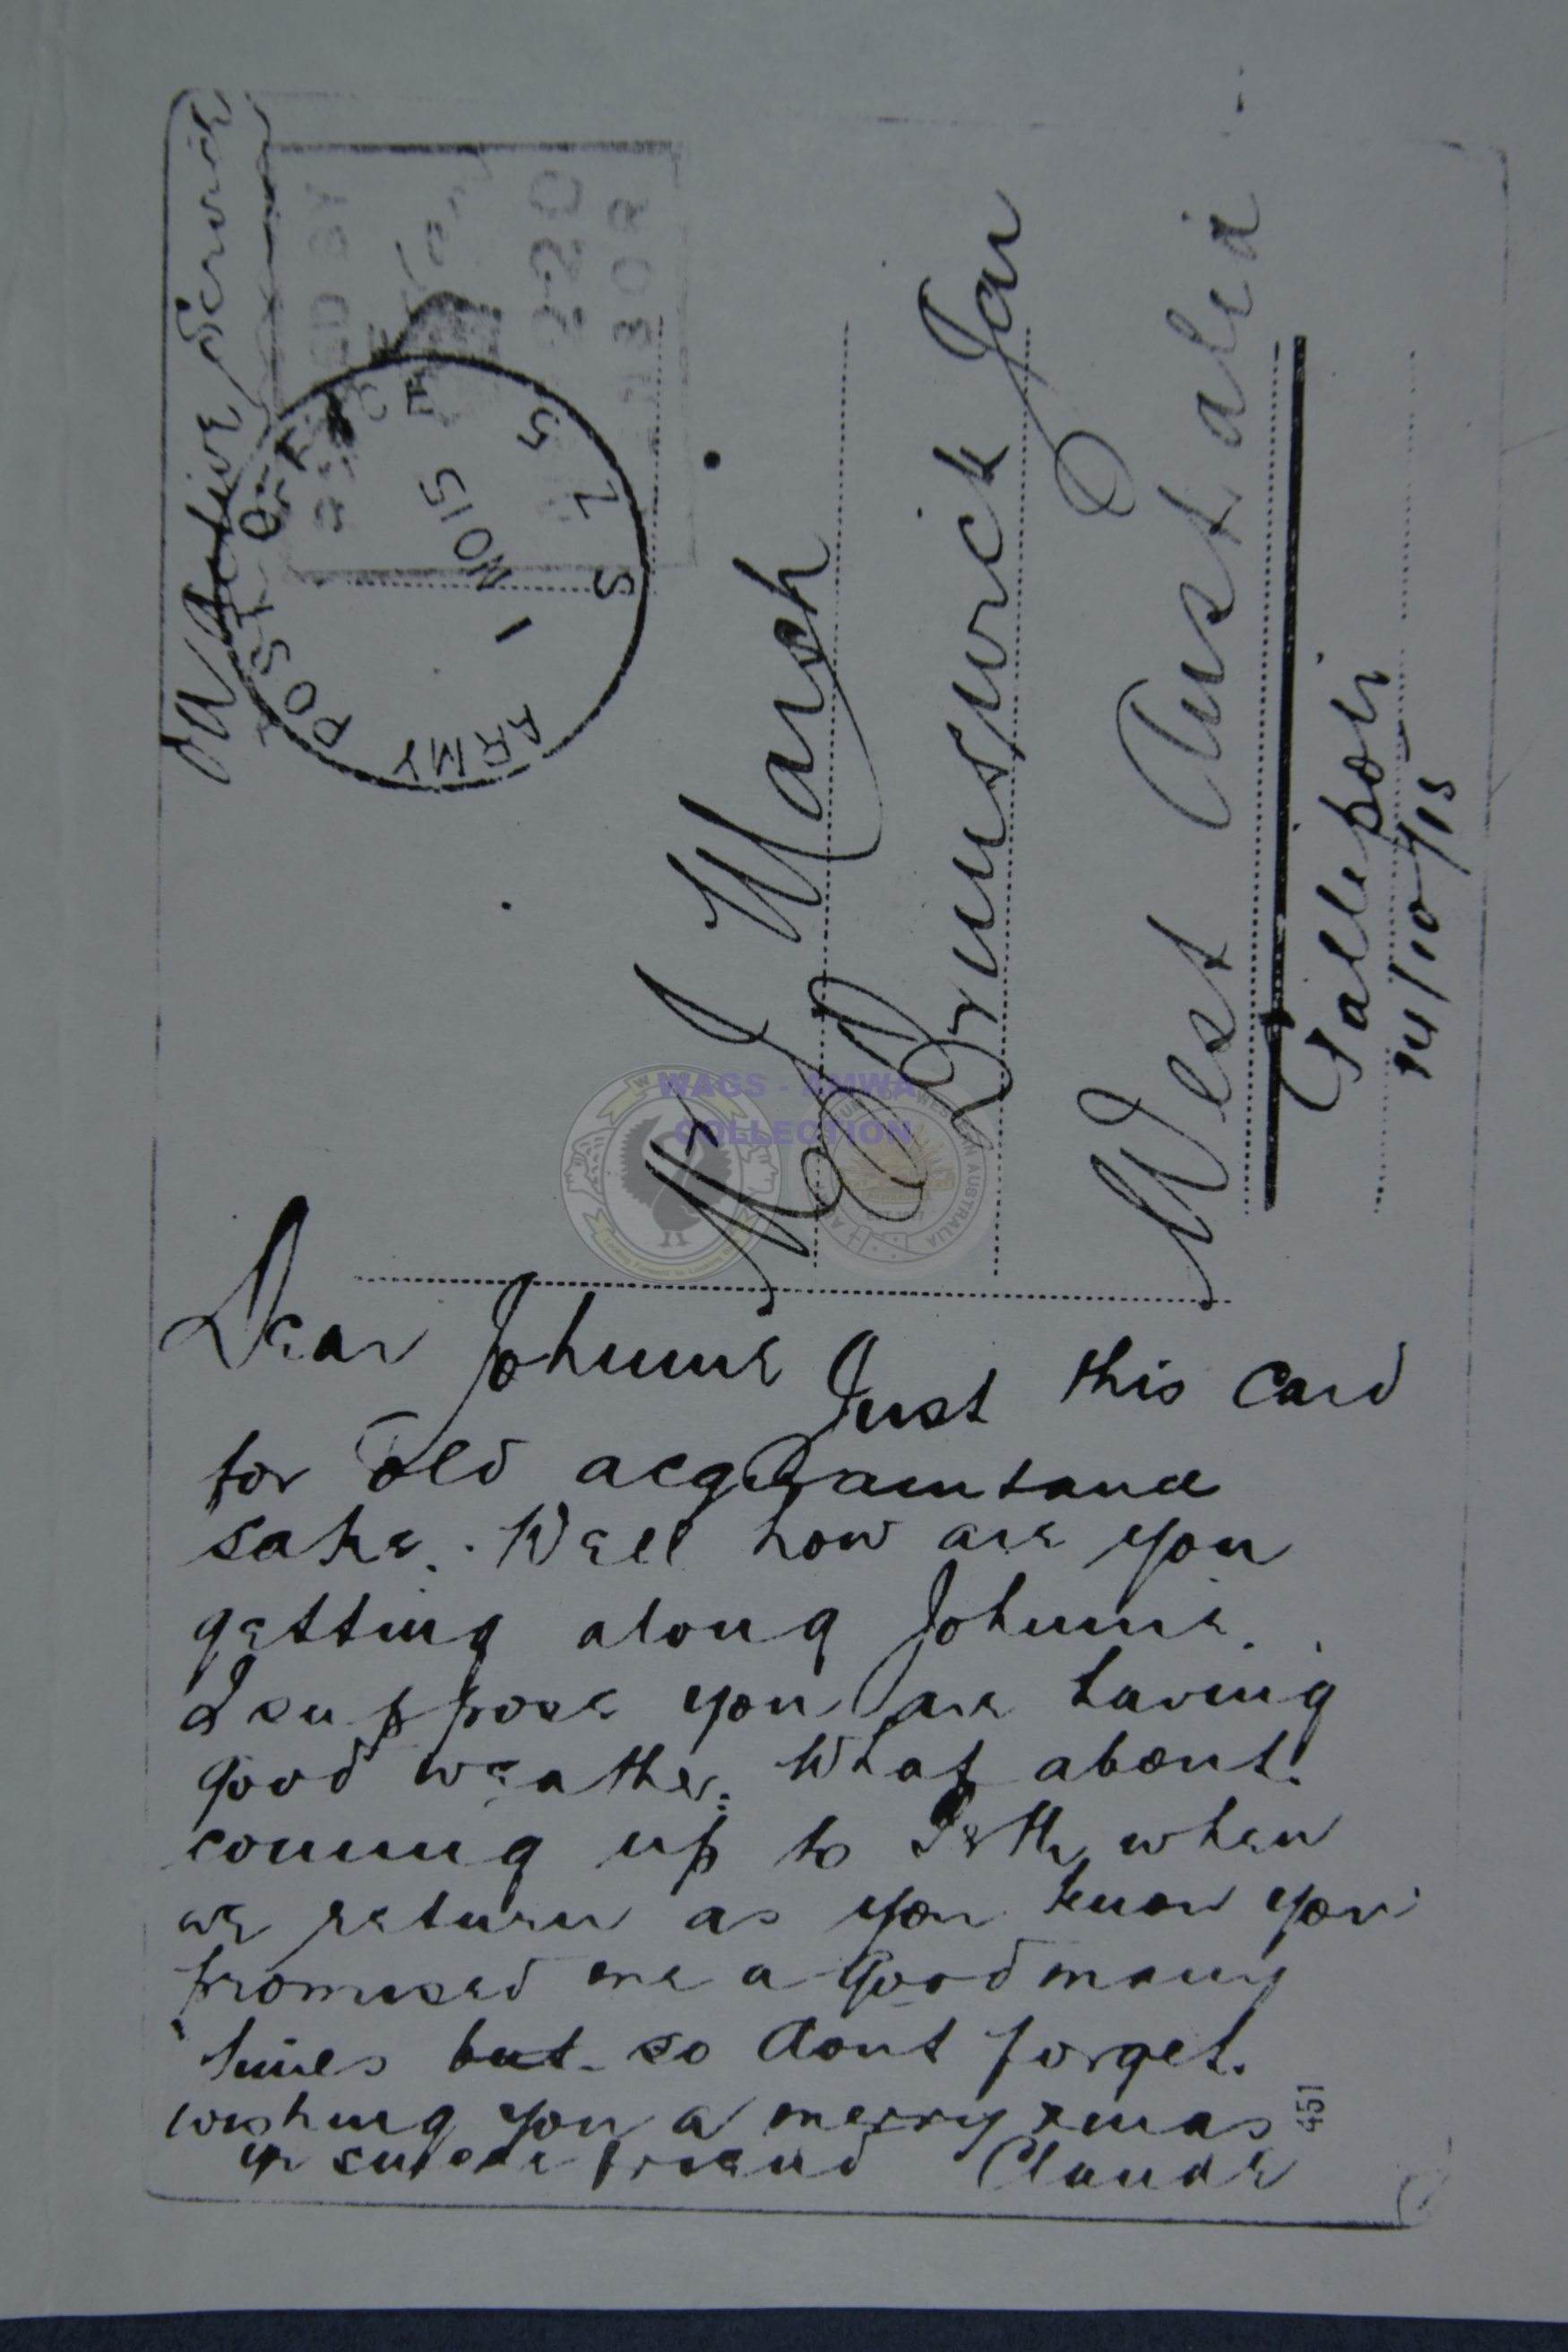 On Active Service
ARMY POST OFFICE
1 NO 15
S Z 5
Mr J Marsh
Brunswick Jan
West Australia
Gallipoli
14/10/15
WAGS - AMWA
COLLECTION
Dear Johnnie
Just this card
for old acquaintance
sake. Well how are you
getting along Johnnie.
I suppose you are having
good weather. What about
coming up to Perth when
we return as you know you
promised me a good many
times but so dont forget.
wishing you a merry xmas
yr sincere friend Claude
451